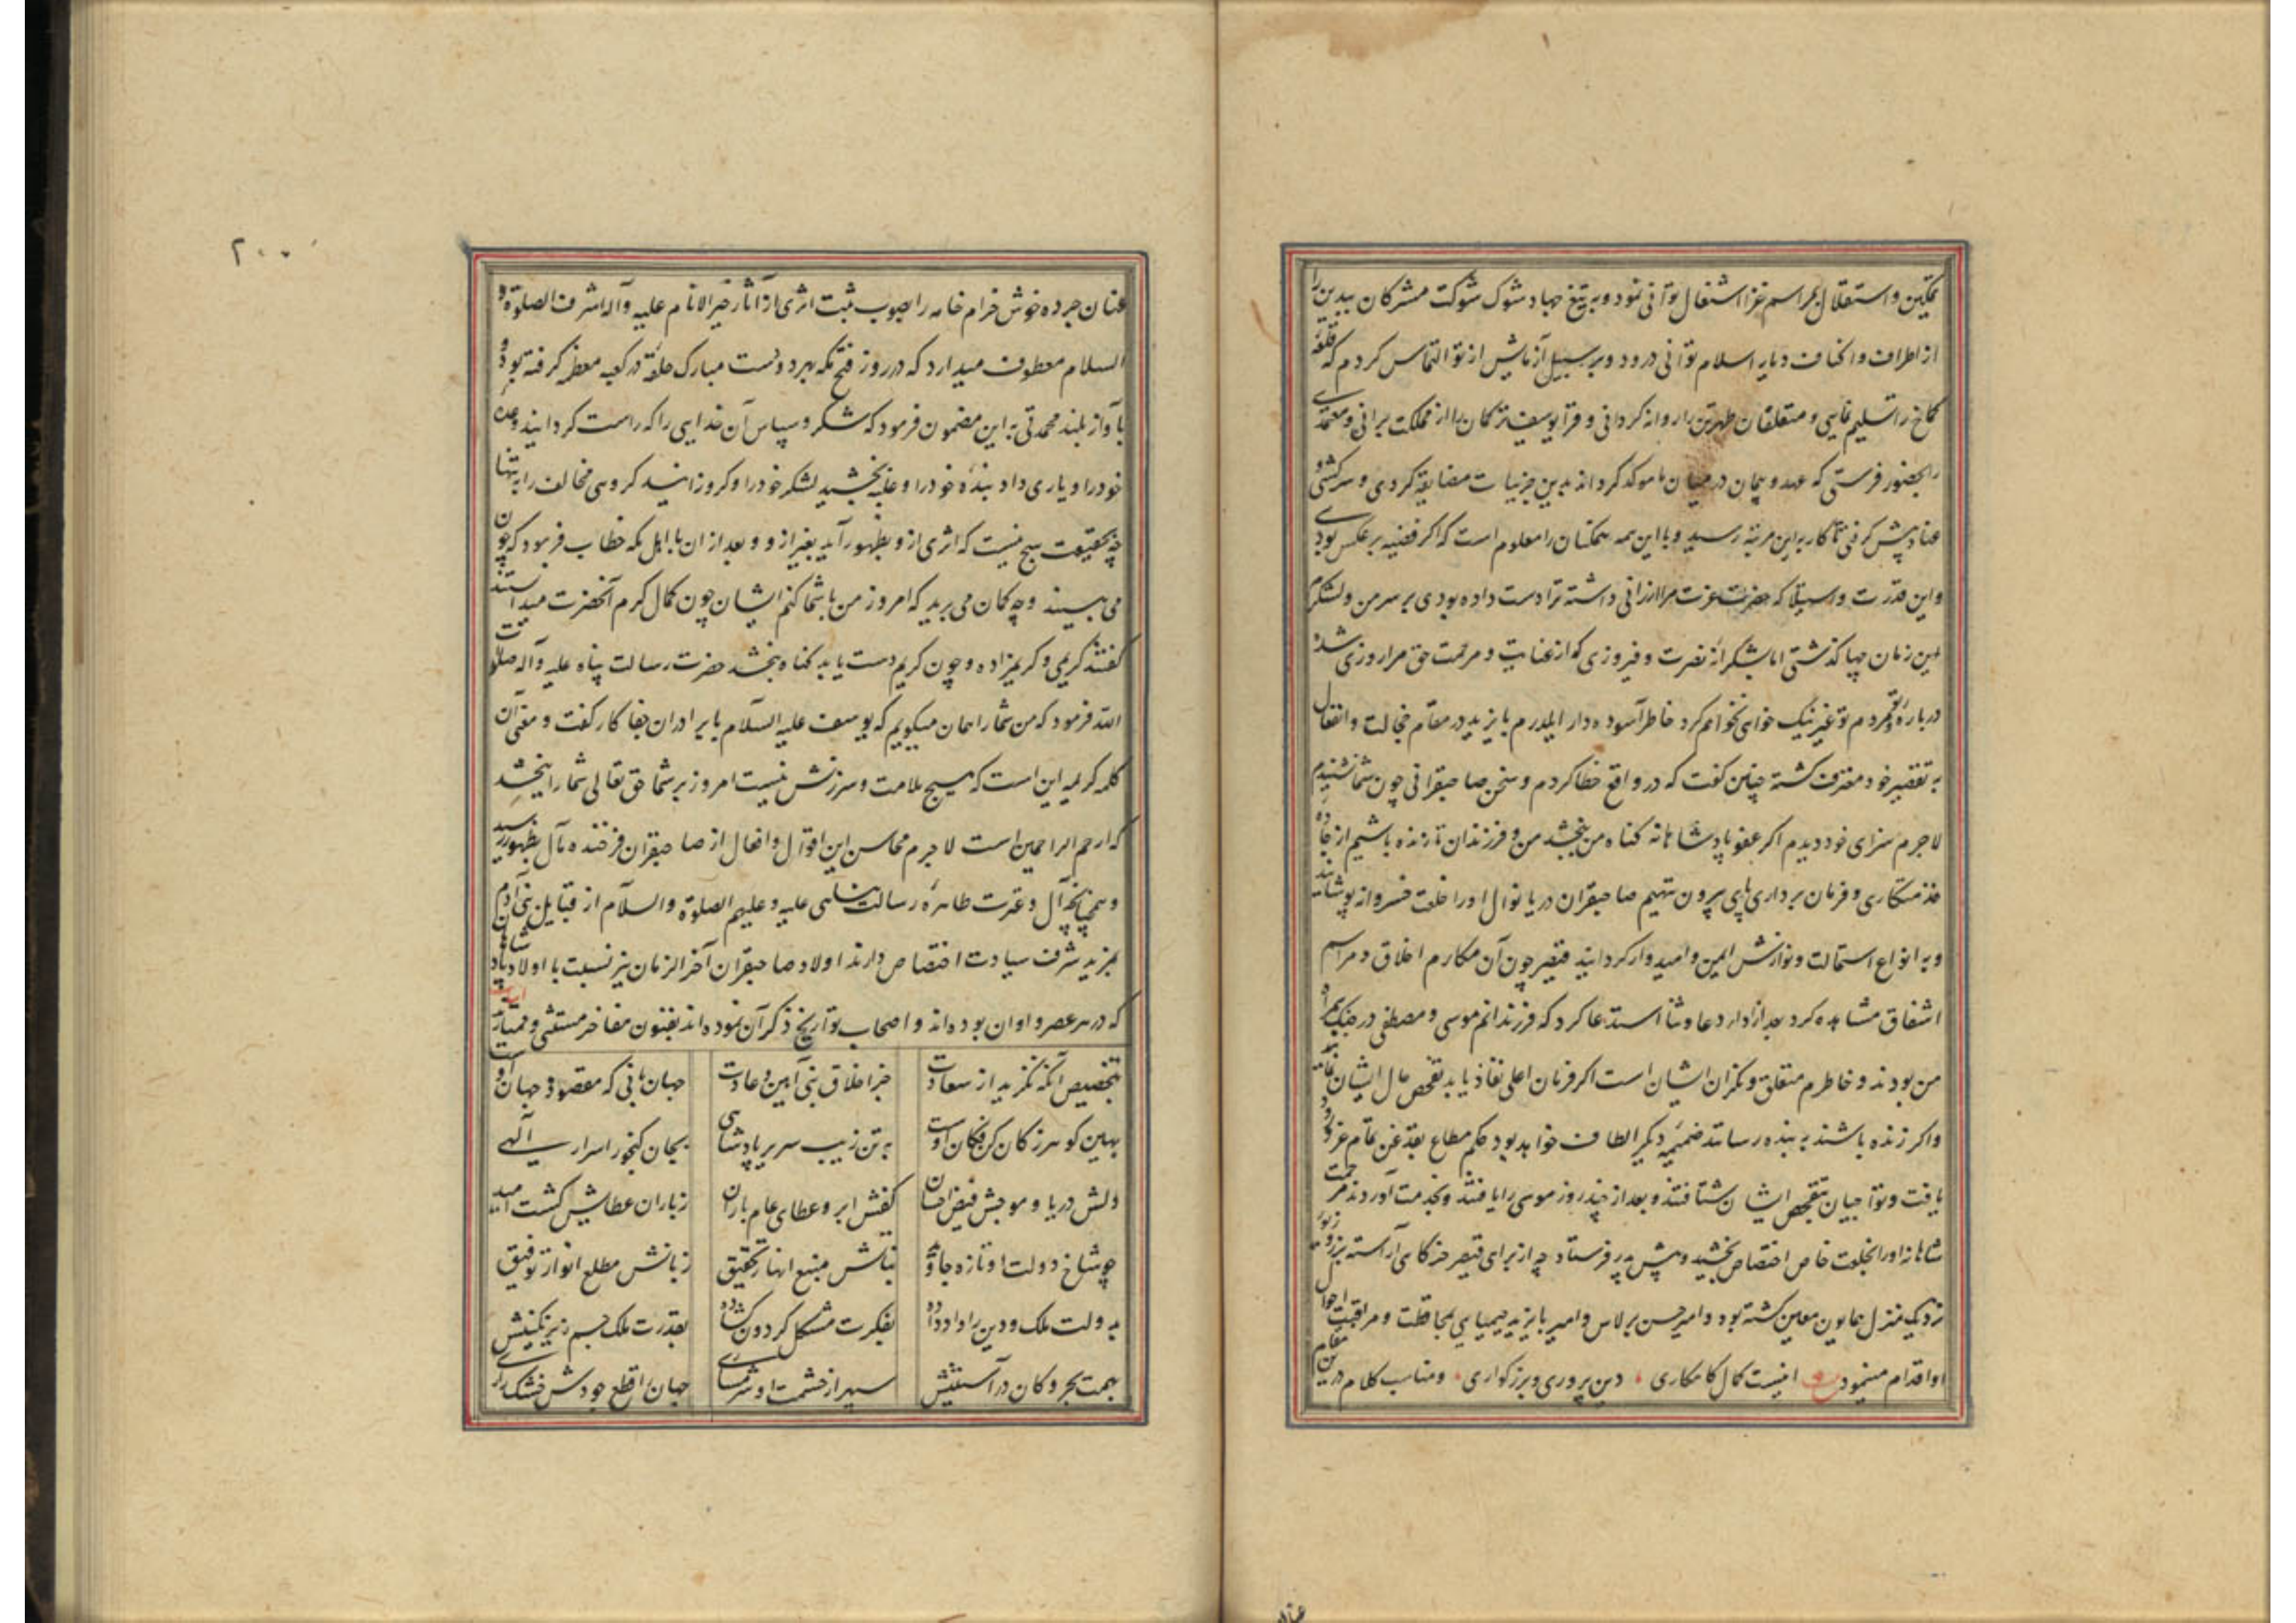 تمکین و استقلال بمراسم غزا اشتغال توانی نمود و به تیغ جهاد شوک شوکت مشرکان بیدین را
از اطراف و اکناف دیار اسلام توانی درود و بر سبیل آزمایش از تو التماس کردم که قلعه
کماخ را تسلیم نمایی و متعلقان طهرتن را روانه کردانی و قرا یوسف ترکمان را از مملکت برانی و معتمدی
را بحضور فرستی که عهد و پیمان در میان ما موکد کرداند بدین جزئیات مضایقه کردی و سرکشی و
عناد پیش کرفتی تا کار به این مرتبه رسید و با این همه همکنان را معلوم است که اکر قضیه بر عکس بودی
و این قدرت و استیلا که حضرت عزت مرا ارزانی داشته ترا دست داده بودی بر سر من و لشکرم
این زمان چها کذشتی اما بشکرانه نصرت و فیروزی که از عنایت و مرحمت حق مرا روزی شده
درباره تو و مردم تو غیر نیک خواهی نخواهم کرد خاطر آسوده دار ایلدرم بایزید در مقام خجالت و انفعال
به تقصیر خود معترف کشته چنین کفت که در واقع خطا کردم و سخن صاحبقرانی چون شما نشنیدم
لاجرم سزای خود دیدم اکر عفو پادشاهانه کناه من ببخشد من و فرزندان تا زنده باشیم از جاده
خدمتکاری و فرمان برداری پای بیرون ننهیم صاحبقران دریا نوال او را خلعت خسروانه پوشانید
و به انواع استمالت و نوازش ایمن و امیدوار کردانید قیصر چون آن مکارم اخلاق و مراسم
اشفاق مشاهده کرد بعد از ادا دعا و ثنا استدعا کرد که فرزندانم موسی و مصطفی در جنک همراه
من بودند و خاطرم متعلق و نکران ایشان است اکر فرمان اعلی نفاذ یابد تفحص حال ایشان نمایند
و اکر زنده باشند به بنده رسانند ضمیمه دیکر الطاف خواهد بود حکم مطاع بقدغن تمام عز ورود
یافت و تواجیان بتفحص ایشان شتافتند و بعد از چند روز موسی را یافتند و بخدمت آوردند مرحمت
شاهانه او را بخلعت خاص اختصاص بخشید و پیش پدر فرستاد چه از برای قیصر خرکاهی آراسته بزر و زیور
نزدیک منزل همایون معین کشته بود و امیر حسن برلاس و امیر بایزید چیمبای بمحافظت و مراقبت احوال
او اقدام مینمود بیت اینست کمال کامکاری دین پروری و بزرکواری و مناسب کلام در این مقام
۲۰۰
عنان جرده خوش خرام خامه را بصوب ثبت اثری از آثار خیر الانام علیه و آله اشرف الصلوة و
السلام معطوف میدارد که در روز فتح مکه بهر دو دست مبارک حلقه در کعبه معظمه کرفته بود و
با آواز بلند محمدتی به این مضمون فرمود که شکر و سپاس آن خدایی را که راست کردانید وعده
خود را و یاری داد بنده خود را و غلبه بخشید لشکر خود را و کروزانید کروهی مخالف را به تنها
چه بحقیقت هیچ نیست که اثری ازو بظهور آید بغیر از و و بعد از ان با اهل مکه خطاب فرمود که چون
می بینید و چه کمان می برید که امروز من با شما کنم ایشان چون کمال کرم آنحضرت میدانستند
کفتند کریمی و کریم زاده و چون کریم دست یابد کناه ببخشد حضرت رسالت پناه علیه و آله صلوات
الله فرمود که من شما را همان میکویم که یوسف علیه السلام با برادران جفا کار کفت و معنی آن
کلمه کریمه این است که هیچ ملامت و سرزنش نیست امروز بر شما حق تعالی شما را ببخشد
که ارحم الراحمین است لاجرم محاسن این اقوال و افعال از صاحبقران فرخنده مآل بظهور رسید
و همچنانچه آل و عترت طاهره رسالت پناهی علیه و علیهم الصلوة و السلام از قبایل بنی آدم
بمزید شرف سیادت اختصاص دارند اولاد صاحبقران آخر الزمان نیز نسبت با اولاد پادشاهان
که در هر عصر و اوان بوده اند و اصحاب تواریخ ذکر آن نموده اند بفنون مفاخر مستثنی و ممتازند
بتخصیص آنکه نکزید از سعادت جز اخلاق نبی آیین و عادت جهانبانی که مقصود جهان اوست
بهین کوهر ز کان کن فکان اوست به تن زیب سریر پادشاهی بجان کنجور اسرار آلهی
دلش دریا و موجش فیض احسان کفش ابر و عطای عام باران ز باران عطایش کشت امید
چو شاخ دولت او تازه جاوید بنانش منبع انهار تحقیق زبانش مطلع انوار توفیق
به دولت ملک و دین را داد داده بفکرت مشکل کردون کشاده بقدرت ملک جم زیر نکینش
بهمت بحر و کان در آستینش سپهر از حشمت او شرمساری جهان اقطاع جودش خشک زاری